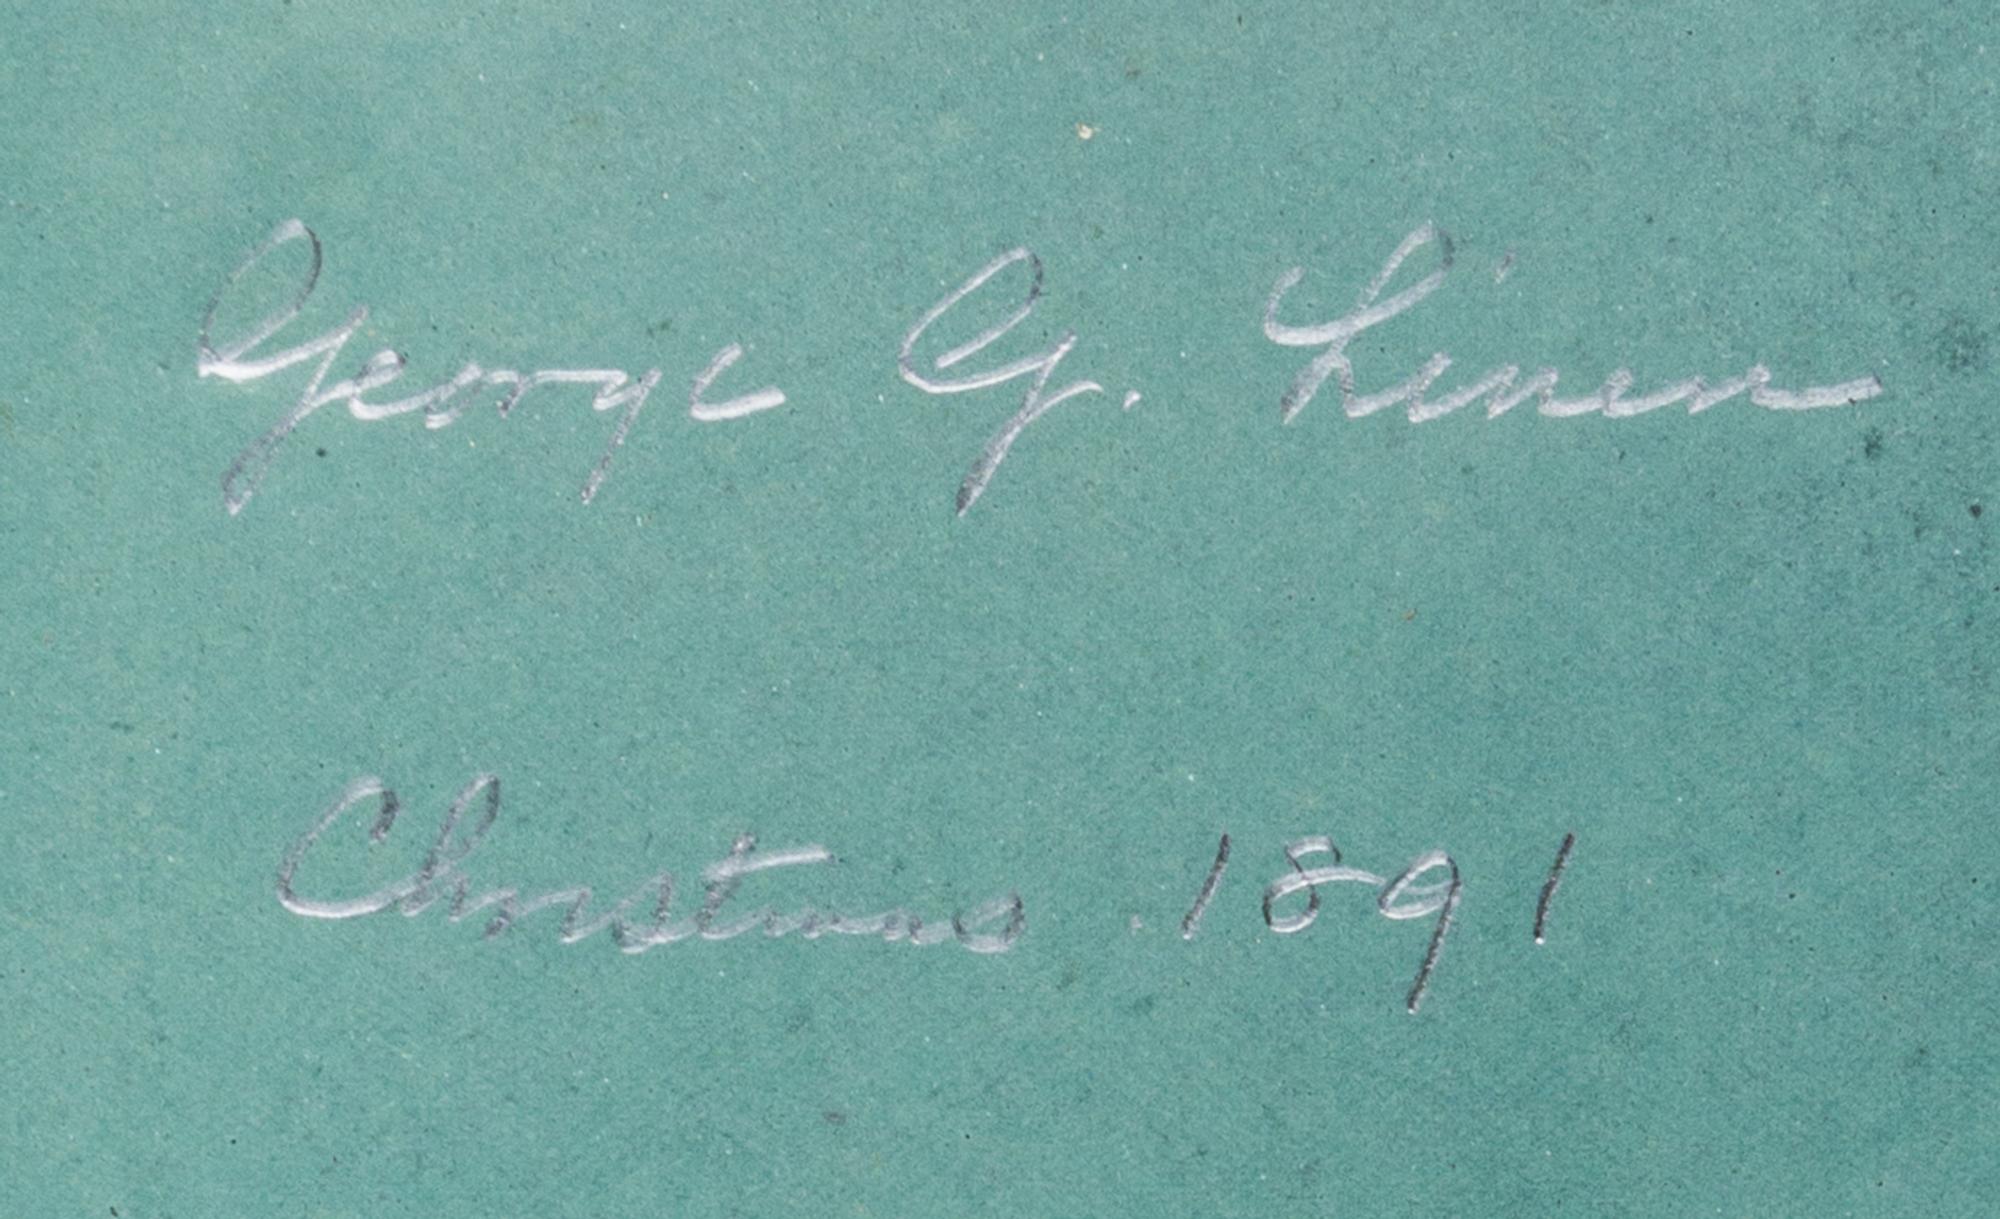 George G. Linen
Christmas. 1891